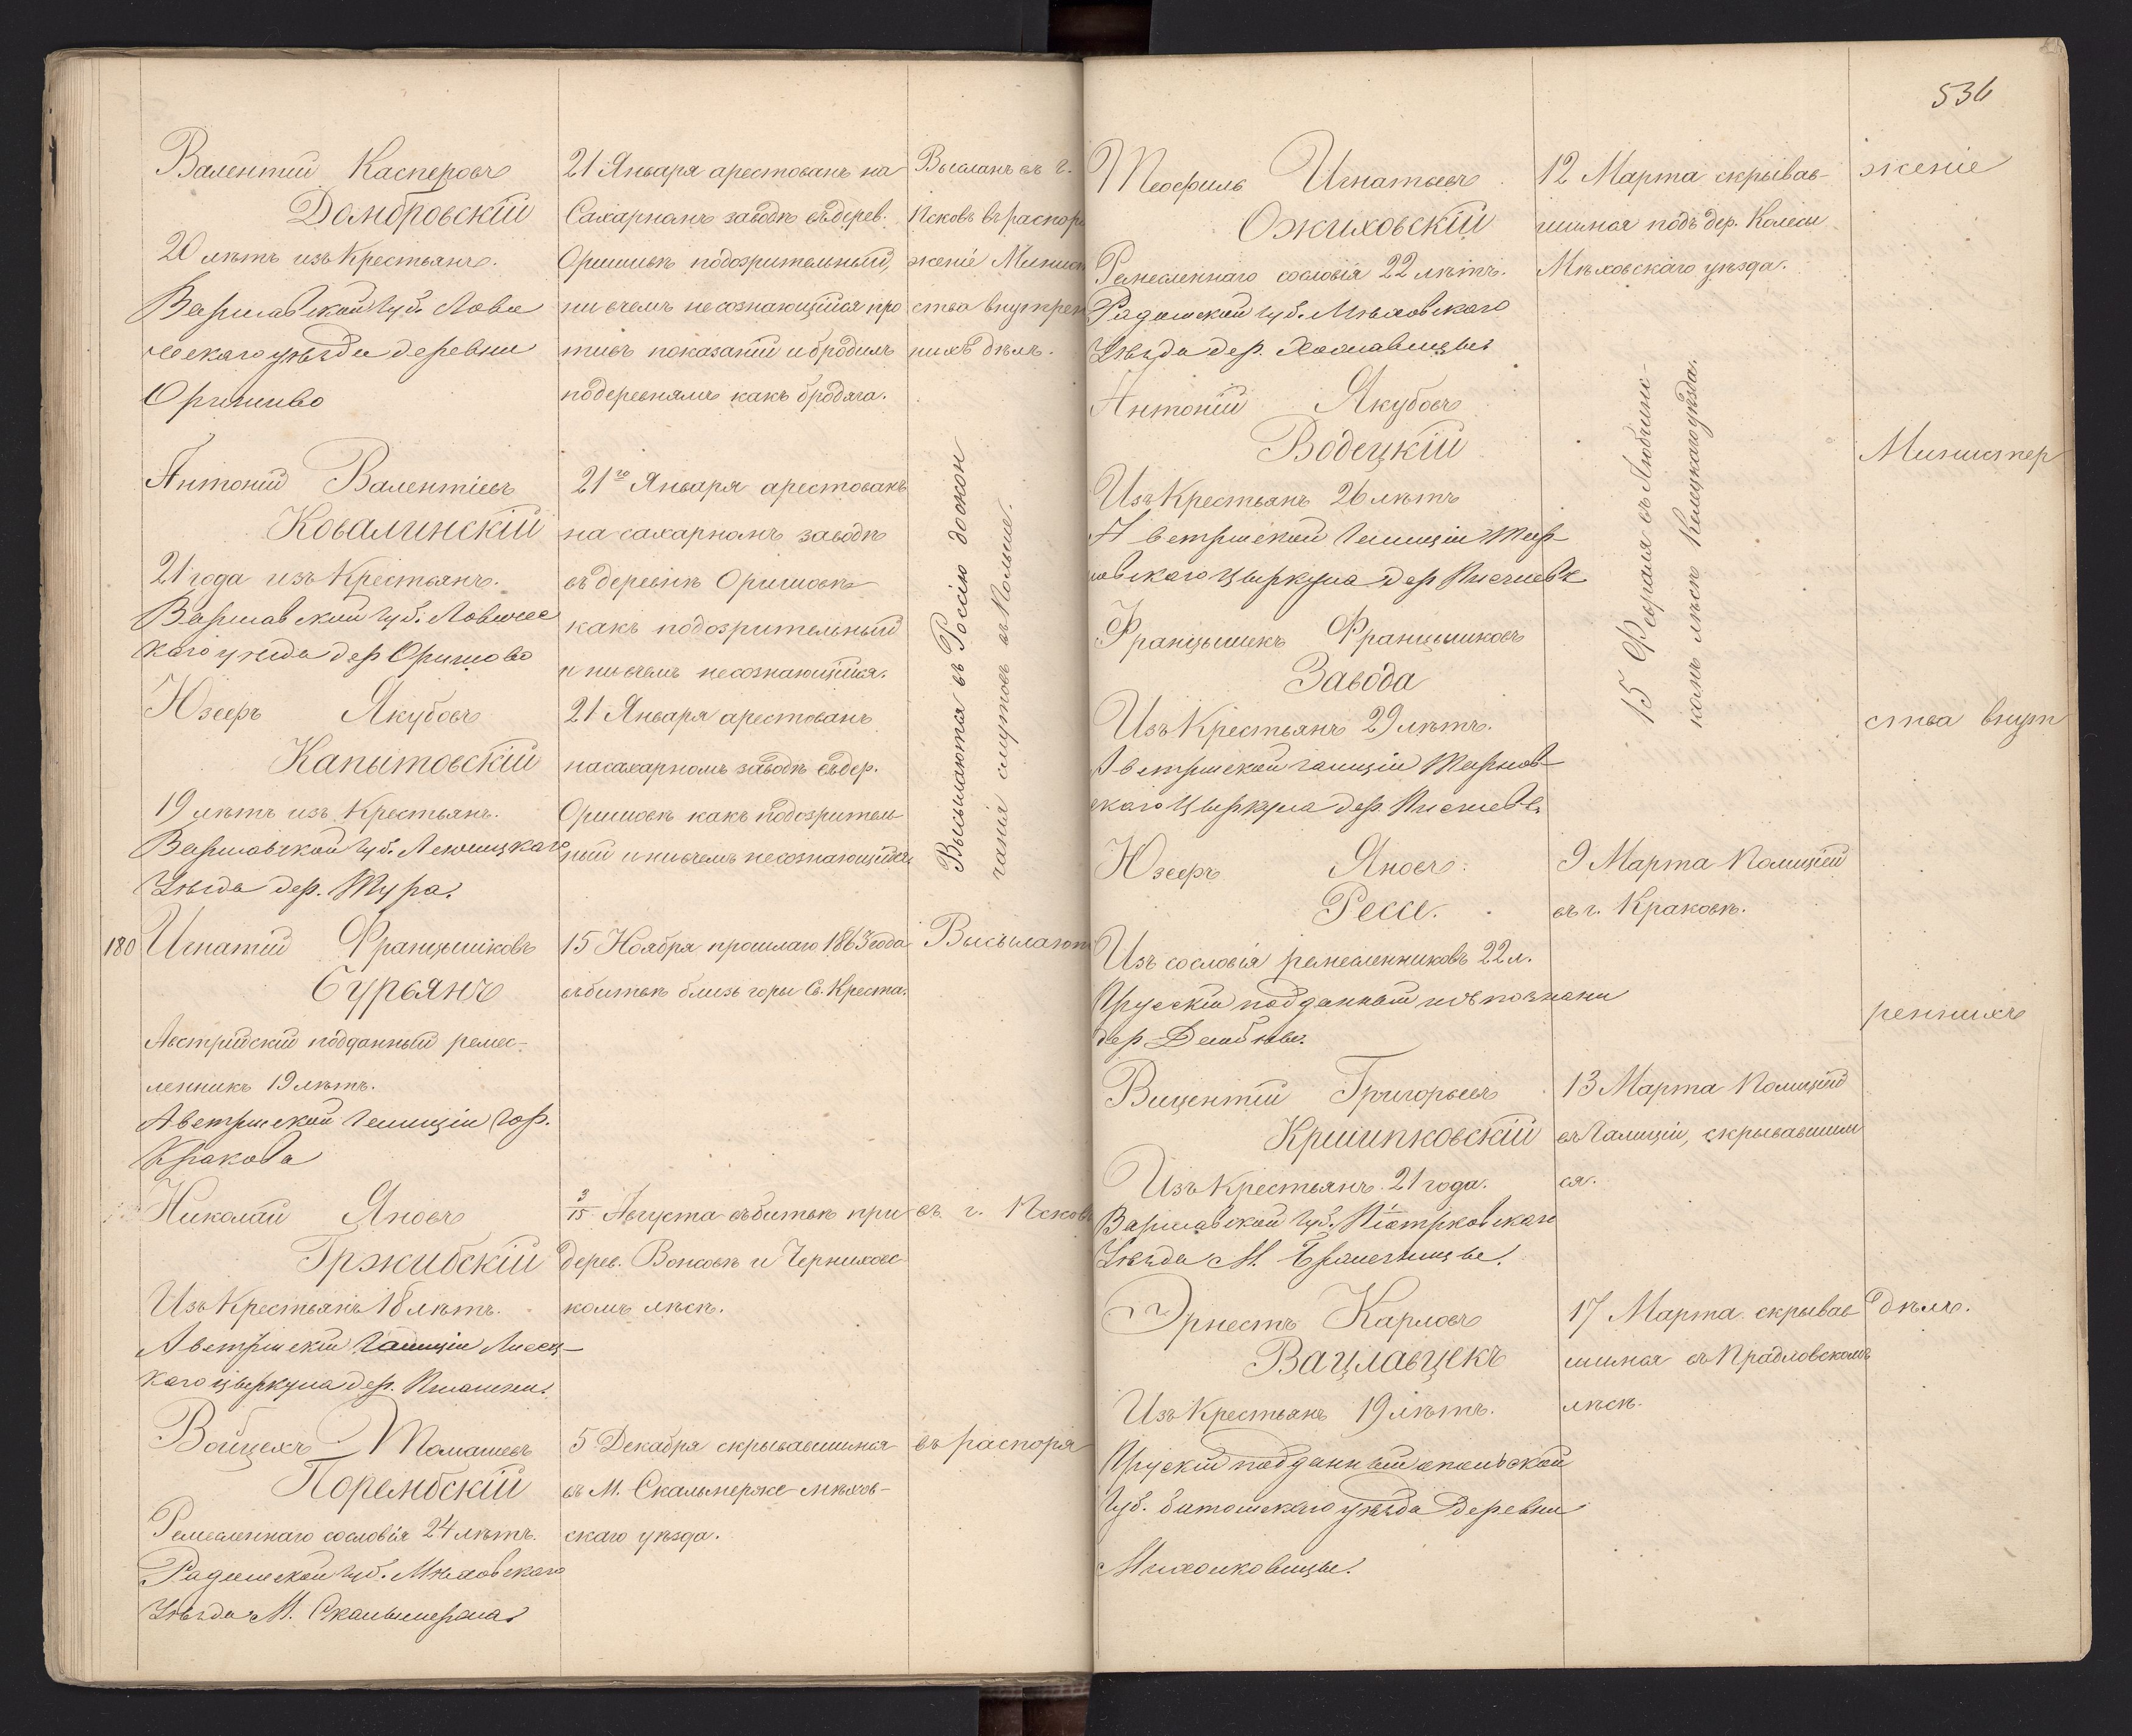 Валентий Касперовъ
Домбровскій
20 лѣтъ изъ Крестьянъ.
Варшавской Губ. Лови
ческаго уѣзда деревни
Оришиво
21 Января арестованъ на
Сахарномъ заводѣ въ дерев.
Оришивѣ подозрительный,
ни въ чемъ не сознающійся про
тивъ показаній и бродилъ
по деревнямъ какъ бродяга.
Высланъ въ г.
Псковъ въ распоря
женіе Минист
ства внутрен
нихъ дѣлъ.
Антоній Валентіевъ
Ковалинскій
21 года изъ Крестьянъ.
Варшавской Губ. Ловичес
каго уѣзда дер Оришово
21го Января арестованъ
на сахарномъ заводѣ
въ деревнѣ Оришовѣ
какъ подозрительный
и ни въ чемъ несознающійся.
Высылаются въ Россію до окон
чанія смутовъ въ Польше.
Юзефъ Якубовъ
Капытовскій
19 лѣтъ изъ Крестьянъ.
Варшавской Губ. Ленчицкаго
Уѣзда дер. Тура.
21 Января арестованъ
на сахарномъ заводѣ въ дер.
Оришовѣ какъ подозритель
ный и ни въ чемъ не сознающійся
180 Игнатій Францышковъ
Сурьянъ
Австрійскій подданный ремес-
ленникъ 19 лѣтъ.
Австрииской Галиціи гор.
Кракова
15 Ноября прошлаго 1863 года
въ битвѣ близь горы Св. Креста.
Высылают
Николай Яновъ
Гржибскій
Изъ Крестьянъ 18 лѣтъ.
Австриискій Галиціи
каго цыркула дер.
3/15 Августа въ битвѣ при
дерев. Вонсовѣ и Чернихов-
комъ лѣсѣ.
въ г. Псков
Войцехъ Томашевъ
Порембскій
Ремесленнаго сословія 24 лѣтъ.
Радомской Губ. Мѣховскаго
Уѣзда М. Скальмержа
5 Декабря скрывавшимся
въ М. Скальмерже Мѣхов-
скаго уѣзда.
въ распоря
536
Теофиль Игнатьевъ
Ожиховскій
Ремесленнаго сословія 22 лѣтъ.
Радомской Губ. Мѣховскаго
Уѣзда дер.
12 Марта скрывав-
шимся подъ дер. Колесы
Мѣховскаго уѣзда.
женіе
Антоній Якубовъ
Водецкій
Изъ Крестьянъ 26 лѣтъ
Австриской Галиціи Тар
новскаго Цыркула дер
15 Февраля въ Любчинс-
комъ лѣсѣ Келецкаго уѣзда.
Министер
Францышекъ Францышковъ
Завода
Изъ Крестьянъ 29 лѣтъ.
Австриской Галиціи Тарнов-
скаго Цыркула дер.
ства внут
Юзефъ Яновъ
Рессе.
Изъ сословія ремесленниковъ 22 л.
Прускій подданный изъ познани
дер
9 Марта Полиціей
въ г. Краковѣ.
реннихъ
Вицентій Григорьевъ
Кршипковскій
Изъ Крестьянъ 21 года.
Варшавской Губ. Піотрковскаго
Уѣзда М.
13 Марта Полиціей
въ Галиціи, скрывавшим
ся.
Эрнестъ Карловъ
Вацлавцекъ
Изъ Крестьянъ 19 лѣтъ.
Прускій подданный опольской
Губ. битомскаго уѣзда деревни
Михалковицы.
17 Марта скрывав
шимся въ Прадловскомъ
лѣсѣ.
дѣлъ.